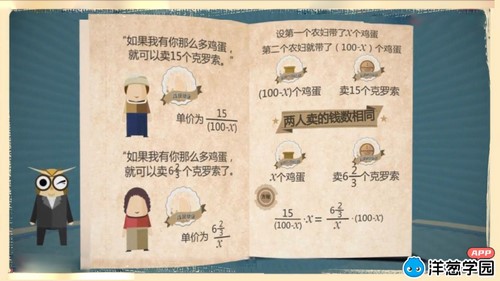 "如果我有你那么多鸡蛋,
就可以卖15个克罗索。
单价为 15/(100-x)
"如果我有你那么多鸡蛋,
就可以卖6 2/3个克罗索了。
单价为 6 2/3/x
设第一个农妇带了x个鸡蛋
第二个农妇就带了(100-x)个鸡蛋
(100-x)个鸡蛋 卖15个克罗索
两人卖的钱数相同
x个鸡蛋 卖6 2/3个克罗索
15/(100-x)·x = 6 2/3/x·(100-x)
APP
洋葱学园